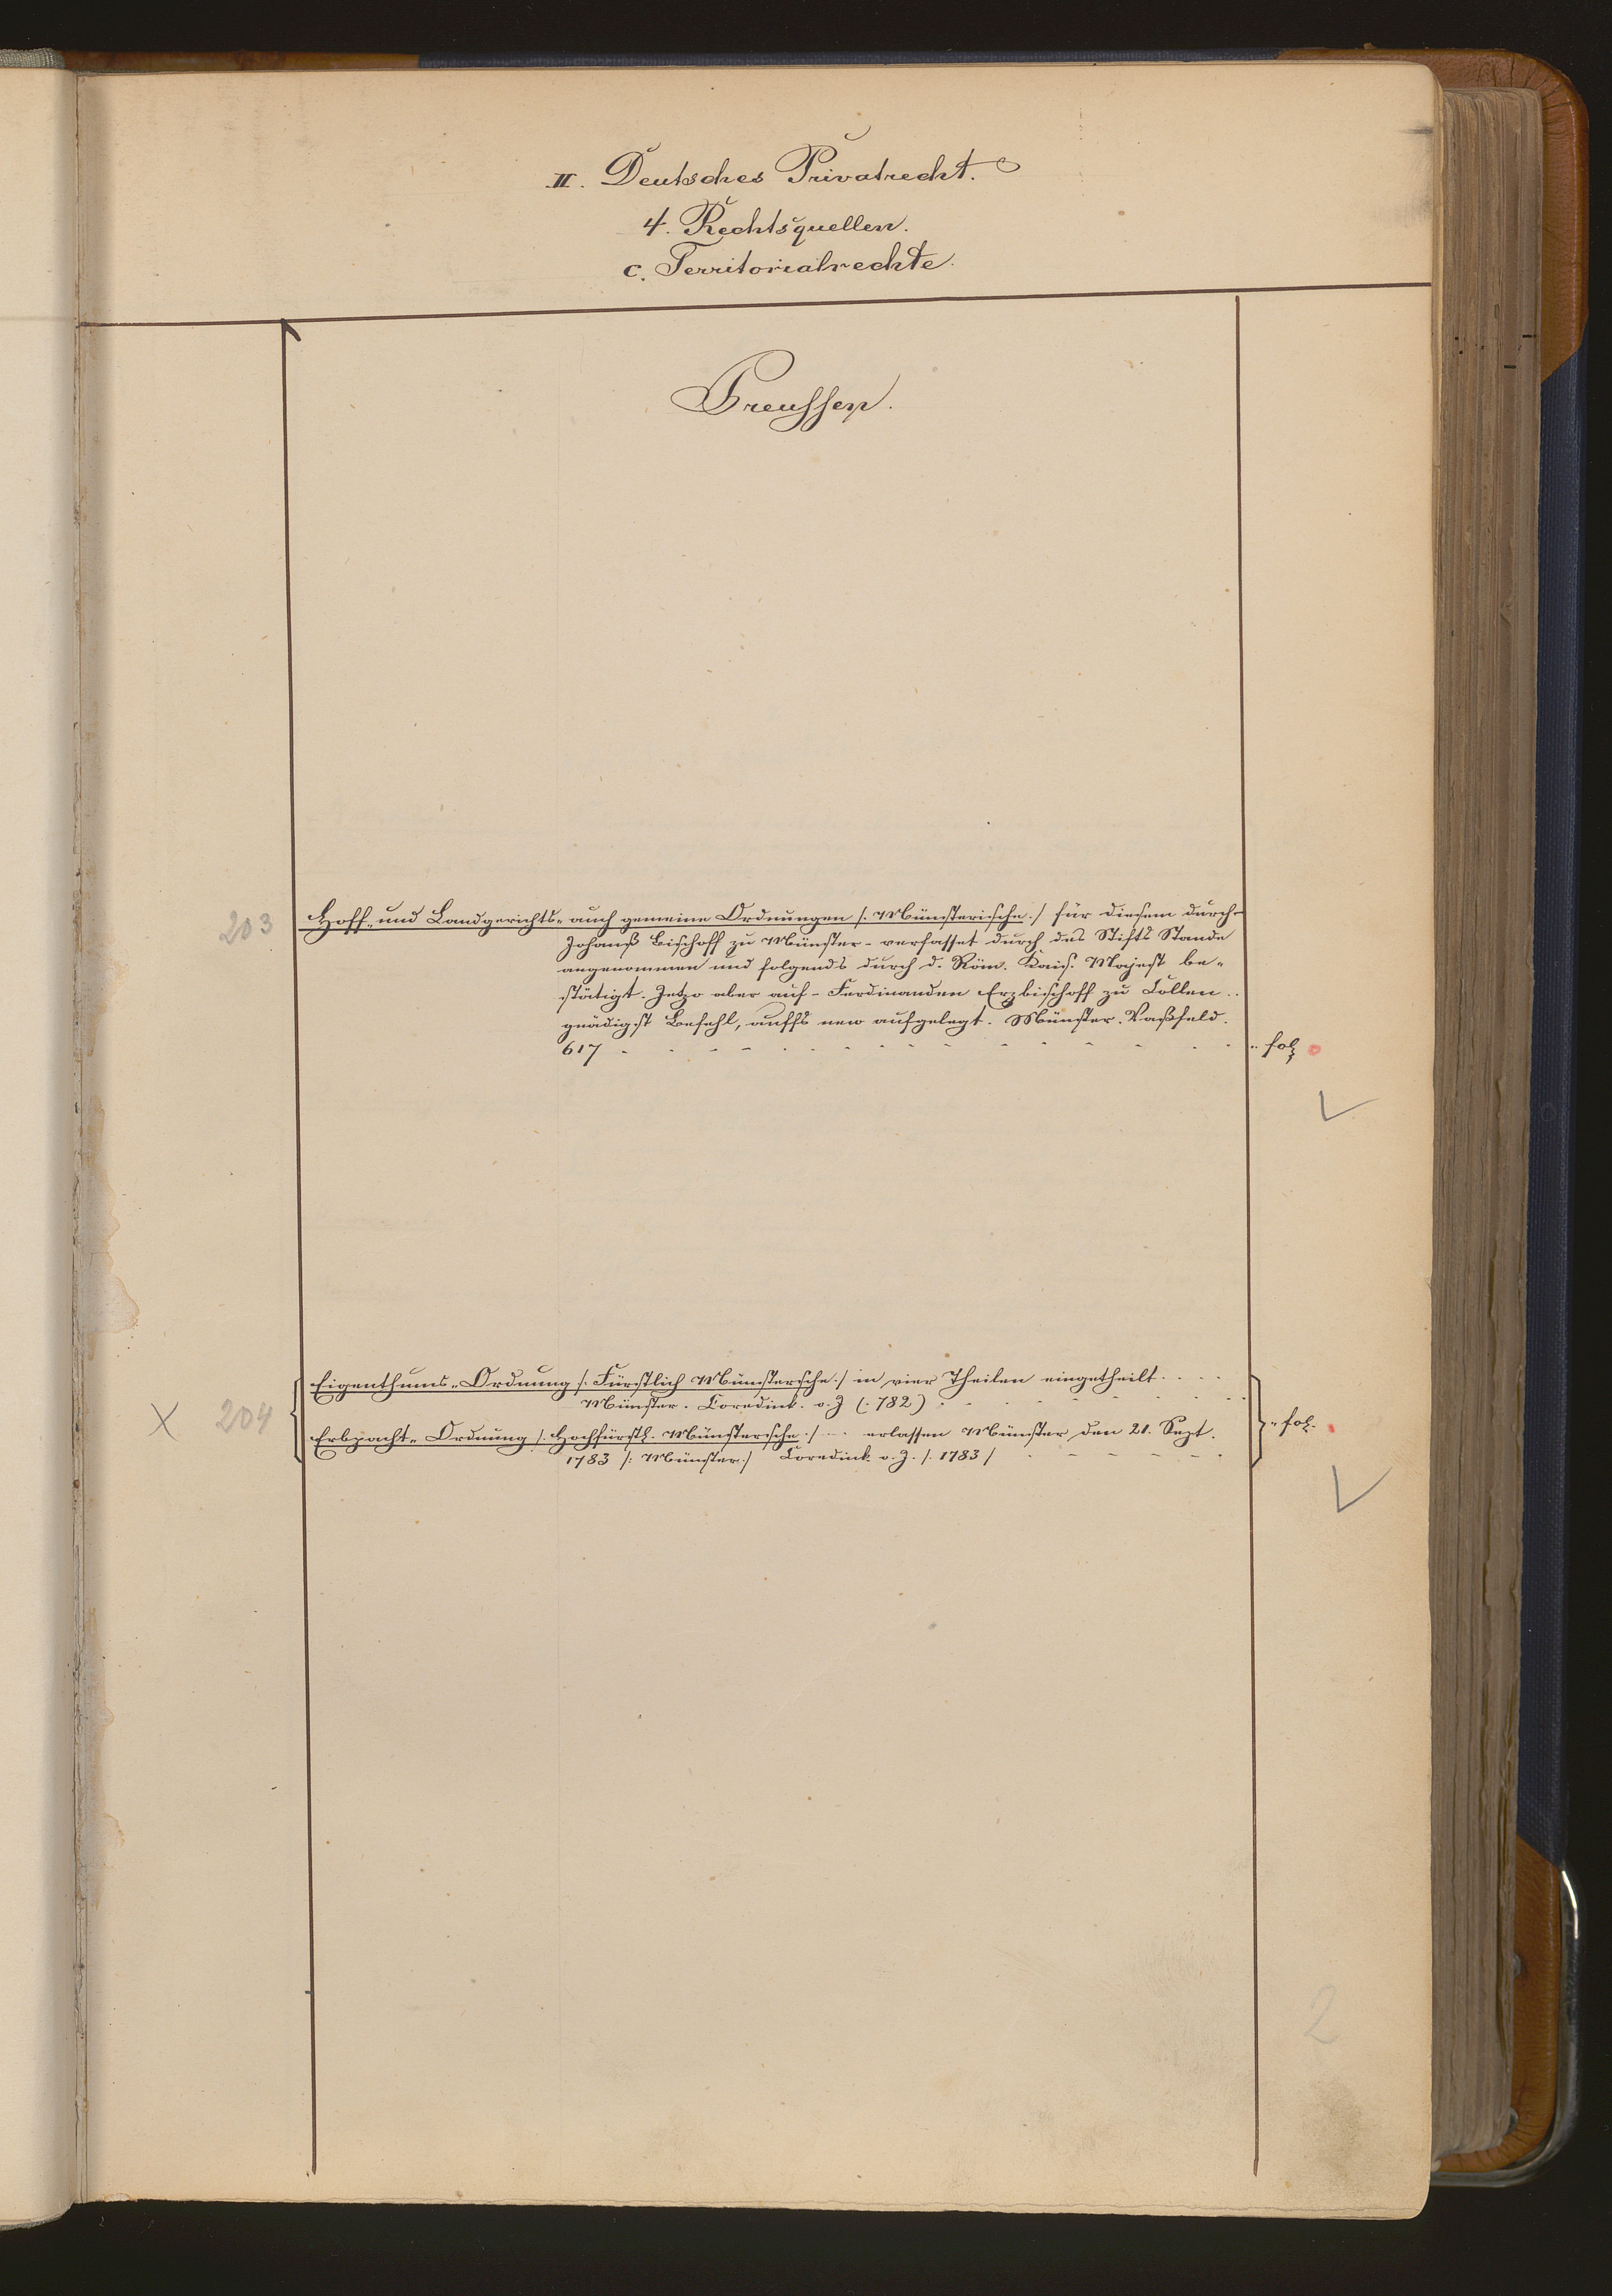 II. Deutsches Privatrecht.
4. Rechtsquellen.
c. Territorialrechte.
Preussen.
203 Hoff- und Landgerichts- auch gemeine Ordnungen /: Münsterische :/ für diesem durch
Johanß Bischoff zu Münster - verfasset durch des Stifts Stande
angenommen und folgends durch d. Röm. Kais. Majest be-
stätigt. Jetzo aber auf - Ferdinanden Erzbischoff zu Cöllen ..
gnädigst Befehl, auffs new aufgelegt. Münster. Raßfeld.
617 - - - - - - - - - - - - - - - " fol.
204 Eigenthums-Ordnung /: Fürstlich Münstersche :/ in vier Theilen eingetheilt . . . .
Münster. Coredink. o. J (: 782) . - - - - - -
Erbpacht-Ordnung /: Hochfürstl. Münsterische :/ ... erlassen Münster den 21. Sept. " fol.
1783 /: Münster :/ Coredink. o. J. /. 1783 / - - - - -
2